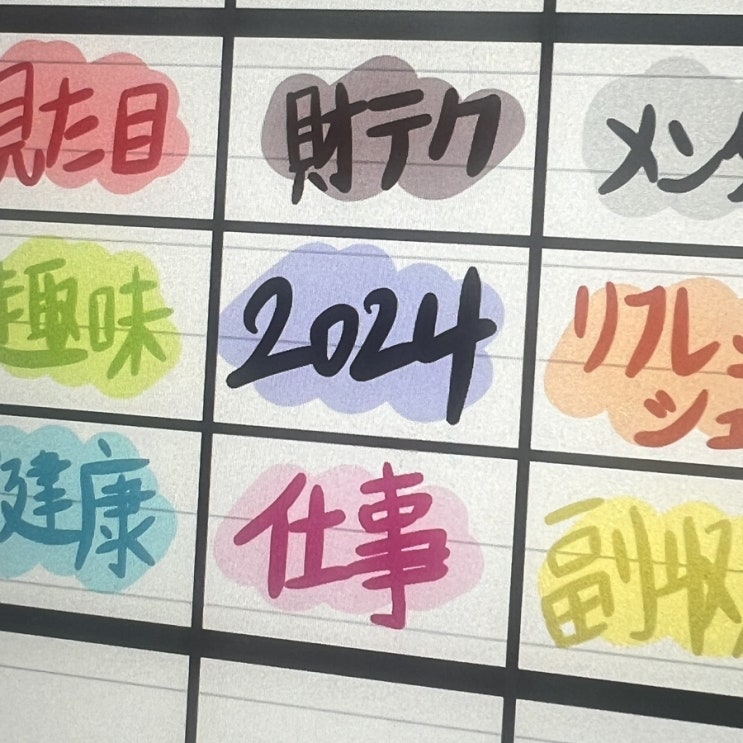 見た目
財テク
メンタ
趣味
2024
リフレッ
シュ
健康
仕事
副収